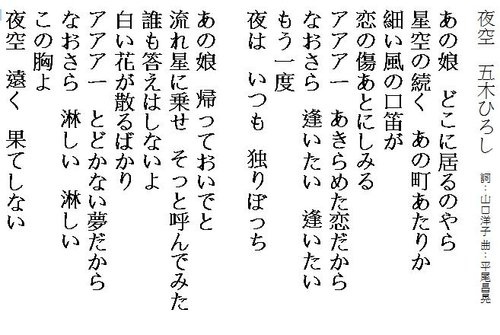 夜空　五木ひろし　詞：山口洋子 曲：平尾昌晃
あの娘　どこに居るのやら
星空の続く　あの町あたりか
細い風の口笛が
恋の傷あとにしみる
アアア一　あきらめた恋だから
なおさら　逢いたい　逢いたい
もう一度
夜は　いつも　独りぼっち
あの娘　帰っておいでと
流れ星に乗せ　そっと呼んでみた
誰も答えはしないよ
白い花が散るばかり
アアア一　とどかない夢だから
なおさら　淋しい　淋しい
この胸よ
夜空　遠く　果てしない